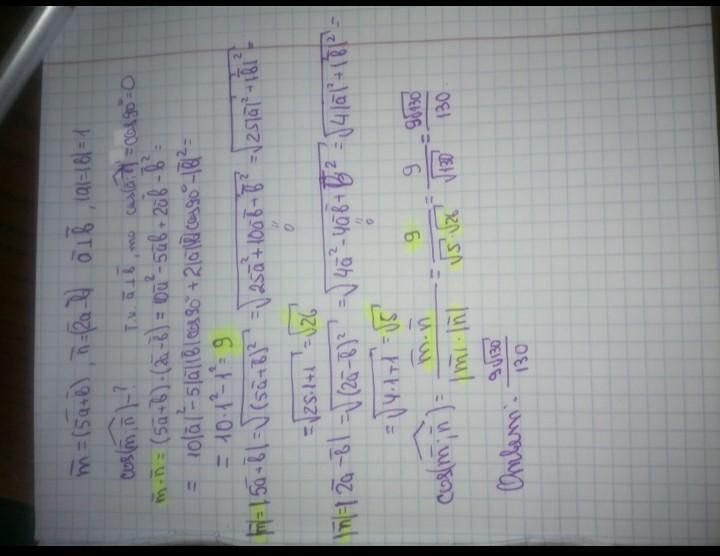 m̄ = (5ā+b̄), n̄ = (2ā-b̄) ā⊥b̄, |ā|=|b̄|=1
cos(m̄;n̄) - ? т.к. ā⊥b̄, то cos(ā;b̄) = cos90°=0
m̄·n̄ = (5ā+b̄)·(2ā-b̄) = 10ā² - 5āb̄ + 2āb̄ - b̄² =
= 10|ā|² - 5|ā||b̄|cos90° + 2|ā||b̄|cos90° - |b̄|² =
= 10·1² - 1² = 9
|m̄| = |5ā+b̄| = √(5ā+b̄)² = √25ā²+10āb̄+b̄² = √25|ā|²+|b̄|² =
0
= √25·1+1 = √26
|n̄| = |2ā-b̄| = √(2ā-b̄)² = √4ā²-4āb̄+b̄² = √4|ā|²+|b̄|² =
0
= √4·1+1 = √5
cos(m̄;n̄) = m̄·n̄ / |m̄|·|n̄| = 9 / √5·√26 = 9 / √130 = 9√130 / 130
Ответ: 9√130 / 130